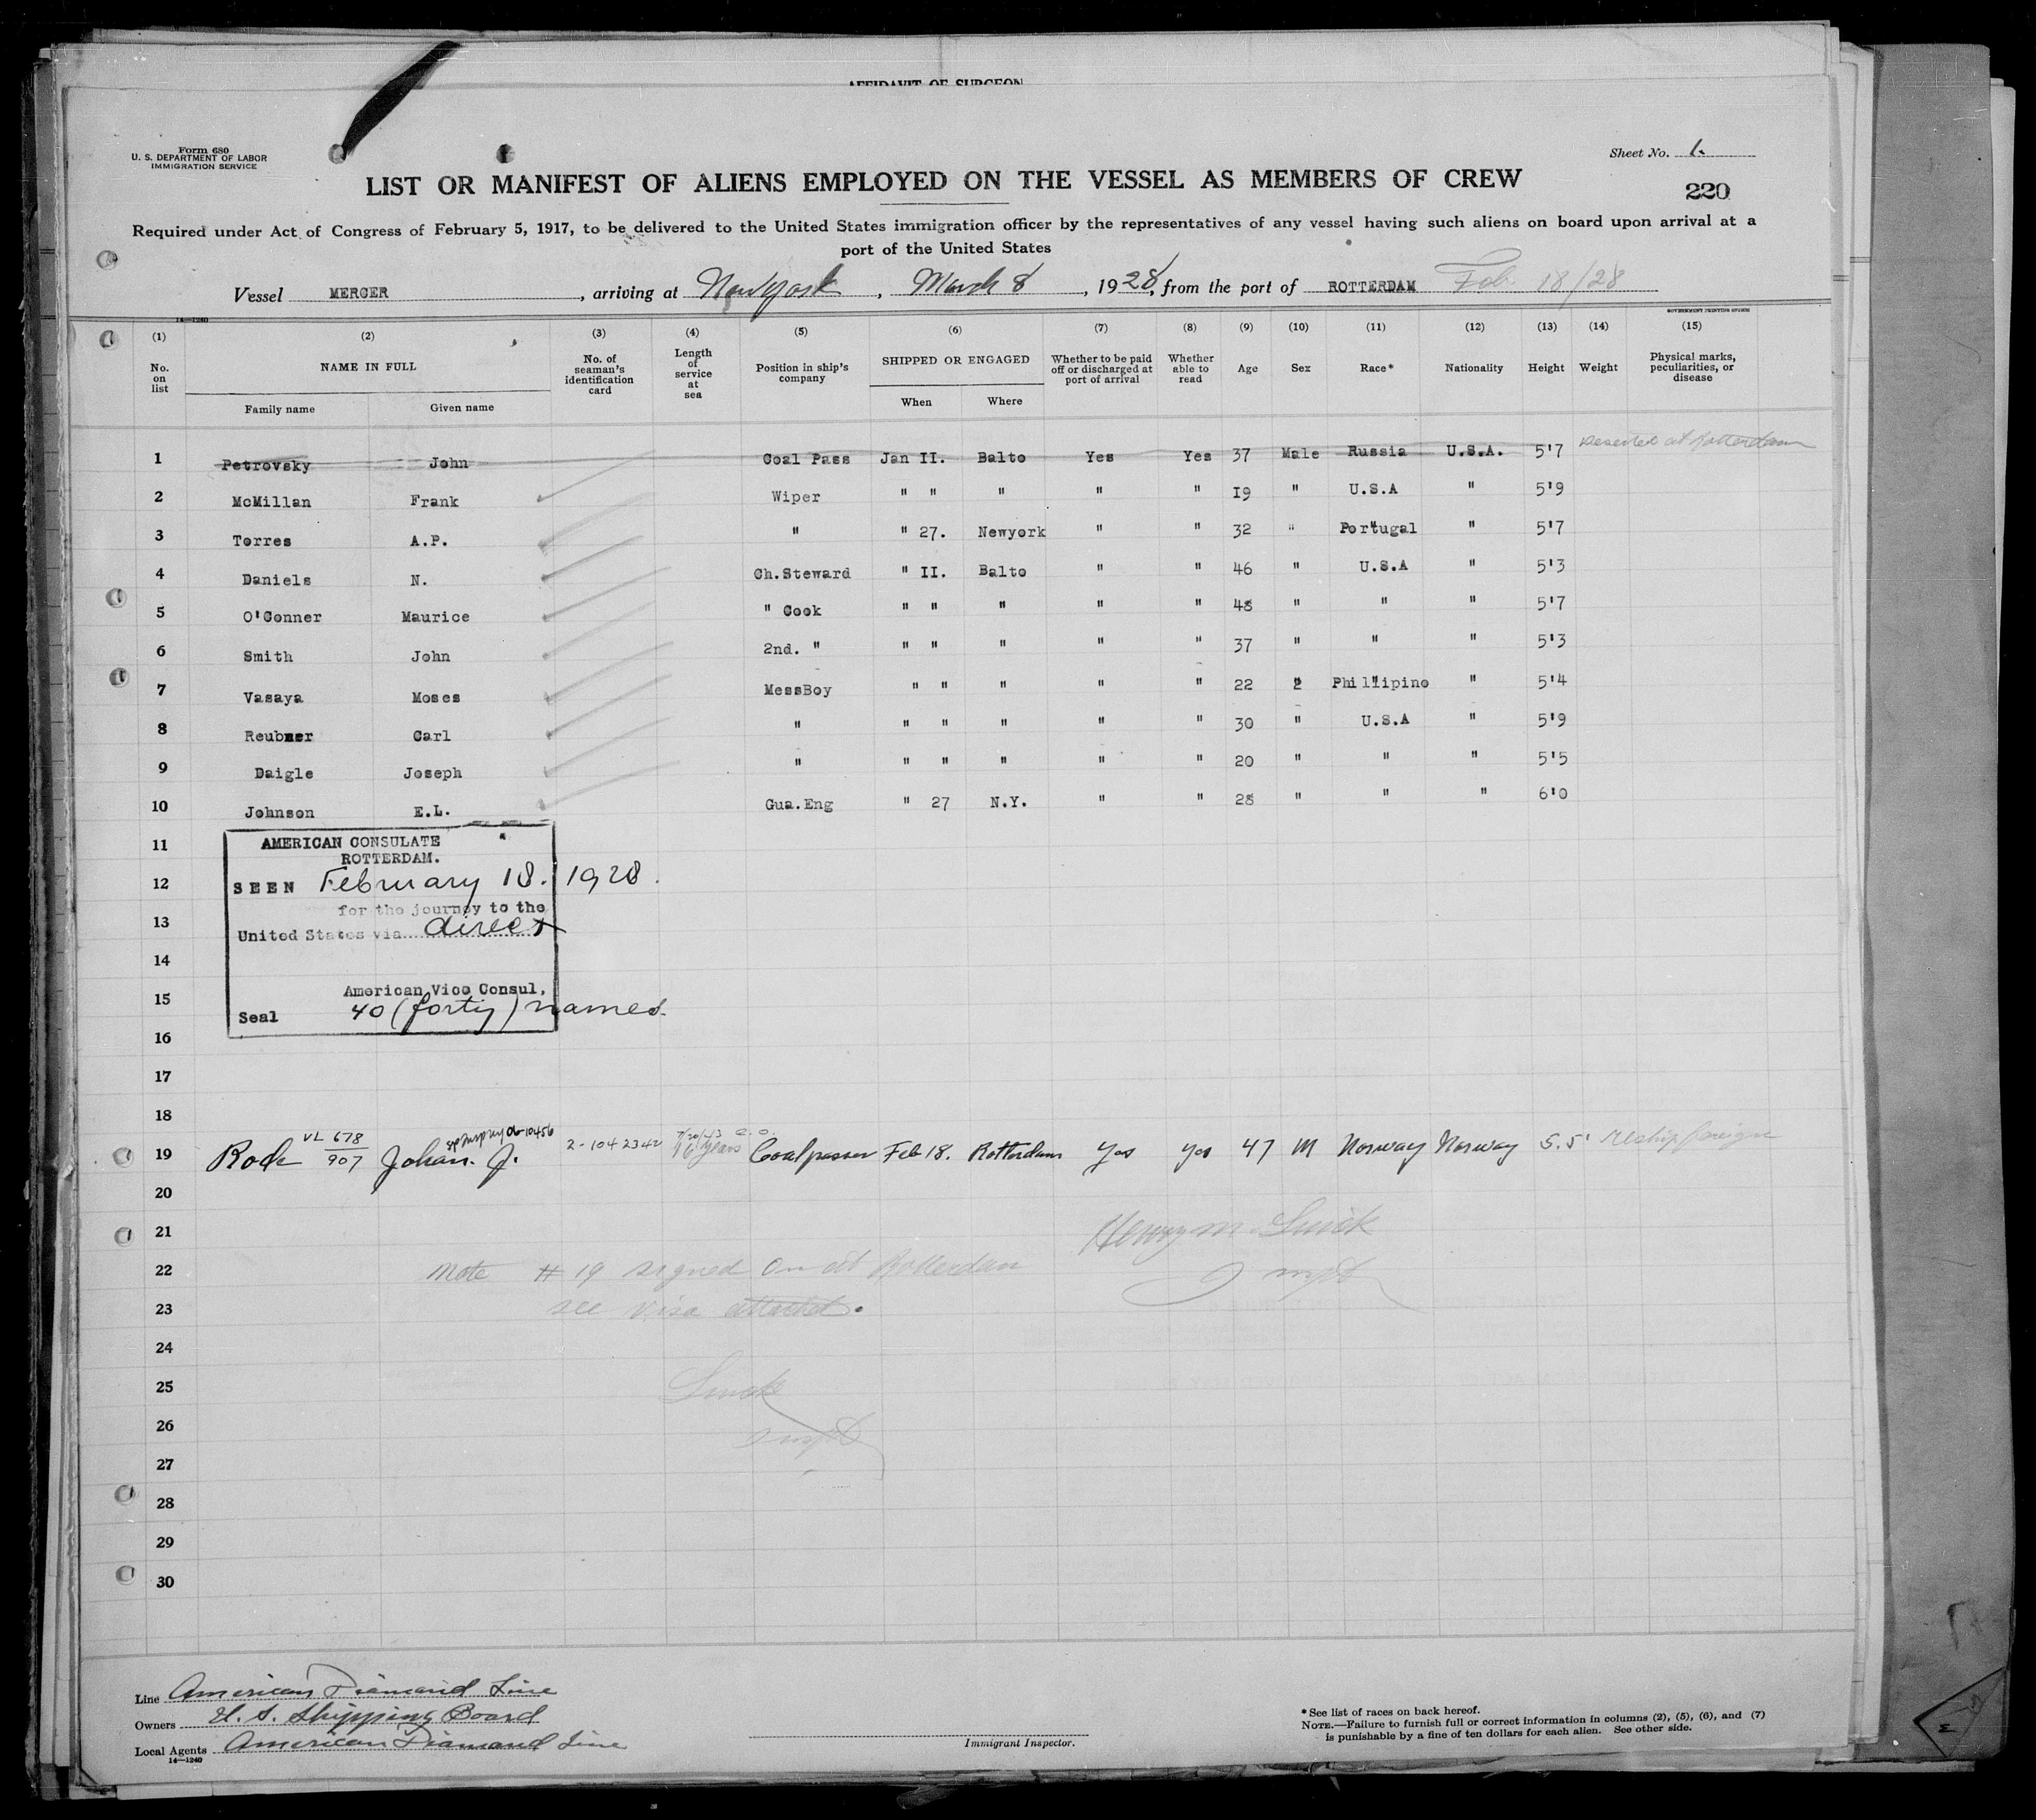 AFFIDAVIT OF SURGEON
Form 680
U. S. DEPARTMENT OF LABOR
IMMIGRATION SERVICE
Sheet No. 1.
LIST OR MANIFEST OF ALIENS EMPLOYED ON THE VESSEL AS MEMBERS OF CREW
220
Required under Act of Congress of February 5, 1917, to be delivered to the United States immigration officer by the representatives of any vessel having such aliens on board upon arrival at a
port of the United States
Vessel MERCER, arriving at Newyork, March 8, 1928, from the port of ROTTERDAM Feb 18/28
14—1240
GOVERNMENT PRINTING OFFICE
(1) (2) (3) (4) (5) (6) (7) (8) (9) (10) (11) (12) (13) (14) (15)
No. on list NAME IN FULL Family name Given name No. of seaman's identification card Length of service at sea Position in ship's company SHIPPED OR ENGAGED When Where Whether to be paid off or discharged at port of arrival Whether able to read Age Sex Race* Nationality Height Weight Physical marks, peculiarities, or disease
1 Petrovsky John Coal Pass Jan II. Balto Yes Yes 37 Male Russia U.S.A. 5'7 Deserted at Rotterdam
2 McMillan Frank Wiper " " " " " I9 " U.S.A " 5'9
3 Torres A.P. " " 27. Newyork " " 32 " Portugal " 5'7
4 Daniels N. Ch.Steward " II. Balto " " 46 " U.S.A " 5'3
5 O'Conner Maurice " Cook " " " " " 48 " " " 5'7
6 Smith John 2nd. " " " " " " 37 " " " 5'3
7 Vasaya Moses MessBoy " " " " " 22 " Phillipino " 5'4
8 Reubner Carl " " " " " " 30 " U.S.A " 5'9
9 Daigle Joseph " " " " " " 20 " " " 5'5
10 Johnson E.L. Gua.Eng " 27 N.Y. " " 28 " " " 6'0
11
AMERICAN CONSULATE
ROTTERDAM.
12
SEEN February 18. 1928.
for the journey to the
13
United States via direct
14
American Vice Consul,
15
Seal 40 (forty) names.
16
17
18
VL 678/907
19 Rock Johan. J. 2-1042342 7/20/43 16 years Coalpasser Feb 18. Rotterdam Yes Yes 47 M Norway Norway 5.5' Reship foreign
20
21 Henry M.
22 Note # 19 signed on at Rotterdam
23 see visa attached.
24
25
26
27
28
29
30
Line American Diamond Line
Owners U. S. Shipping Board
Local Agents American Diamond Line
14—1240
Immigrant Inspector.
* See list of races on back hereof.
NOTE.—Failure to furnish full or correct information in columns (2), (5), (6), and (7)
is punishable by a fine of ten dollars for each alien. See other side.